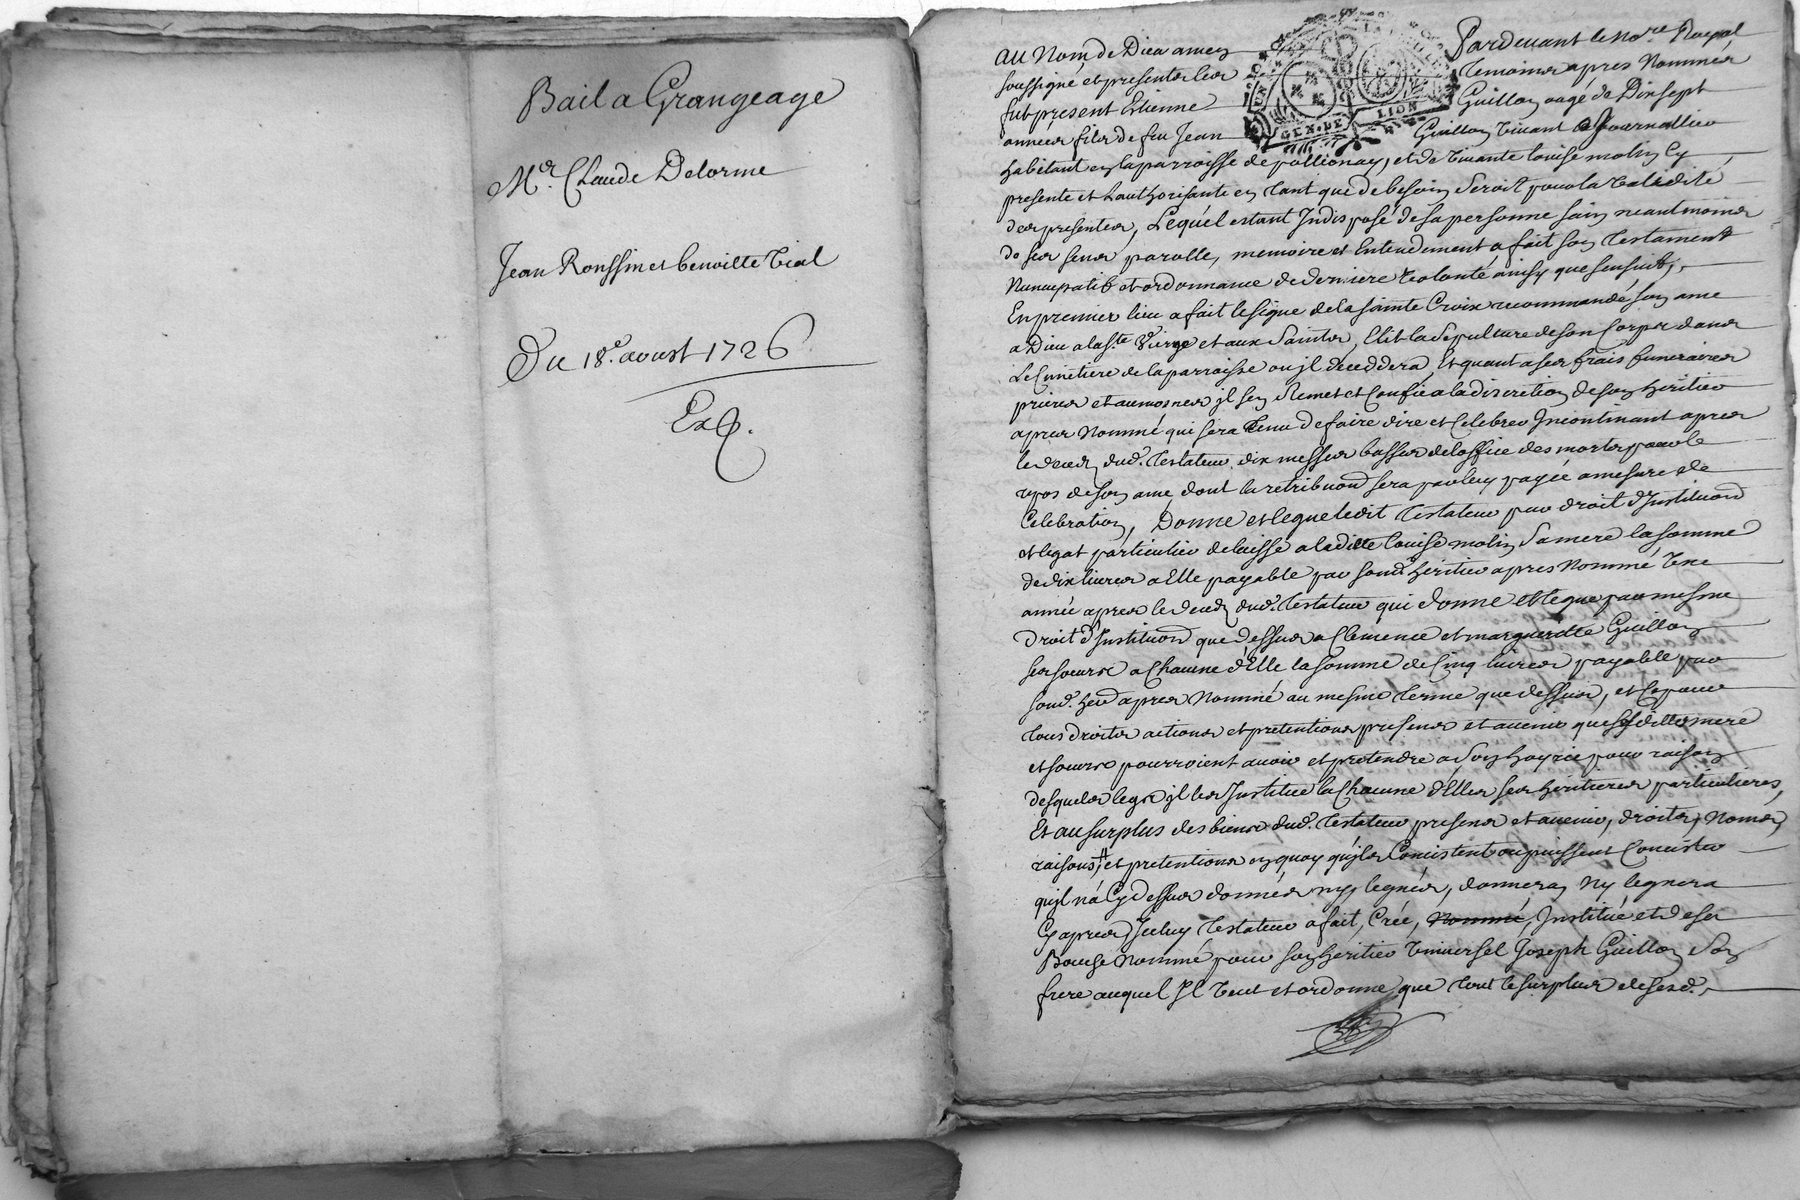 Bail a Grangeage
Mr. Claude Delorme
Jean Ronssin et benoitte Vial
Du 18e. aoust 1726
Exp.
au Nom de Dieu amen Pardevant le Nore. Royal
soussigné et presents les temoins apres Nommés
fut present Etienne Guillon aagé de Dixsept
années fils de feu Jean Guillon vivant Journallier
UN SOL
GEN. DE LION
habitant en la parroisse de pollionay, et de vivante louise molin Cy
presente et Lauthorisante en tant que de besoin Seroit pour la validité
des presentes, Lequel estant Indisposé de sa personne sain neantmoins
de ses sens parolle, memoire et Entendement a fait son testament
Nuncupatif et ordonnance de derniere volonté ainsy que sensuit,
En premier lieu a fait le signe de la sainte Croix recommandé son ame
a Dieu a la ste. Vierge et aux Saints, Elit la Sepulture de son Corps dans
Le Cimetiere de la parroisse ou jl deceddera, Et quant a ses frais funeraires
prieres et aumosnes jl sen Remet et Confie a la discretion de son heritier
apres Nommé qui sera tenu de faire dire et Celebrer Incontinant apres
le deced dud. testateur dix messes basses de loffice des morts pour le
repos de son ame, dont la retribuon sera par luy payée a mesure de
Celebration, Donne et legue ledit testateur par droit d'Instituon
et legat particulier delaisse a laditte louise molin Sa mere la somme
de dix livres a Elle payable par sond. heritier apres Nommé Une
année apres le deced dud. testateur qui donne et legue par mesme
droit d'Instituon que dessus a Clemence et margueritte Guillon
ses soeurs a Chacune d'Elle la somme de Cinq livres payable par
sond. her. apres Nommé au mesme terme que dessus, et Ce pour
tous droits actions et pretentions presens et avenir que sesdittes mere
et soeurs pourroient avoir et pretendre a Son hoyrie pour raison
desquels legs jl les Institue la Chacune d'Elles ses heritieres particulieres,
Et au surplus des biens dud. testateur presens et avenir, droits, Noms,
raisons, # et pretentions en quoy qu'jls Concistent ou puissent Concister
qu'jl n'a Cy dessus donnés ny legués, donnera ny leguera
Cy apres, Jceluy testateur a fait, Créé, Nommé, Institué et de sa
Bouche Nommé pour son heritier Universel Joseph Guillon Son
frere auquel Jl veut et ordonne que tout le surplus de sesd.